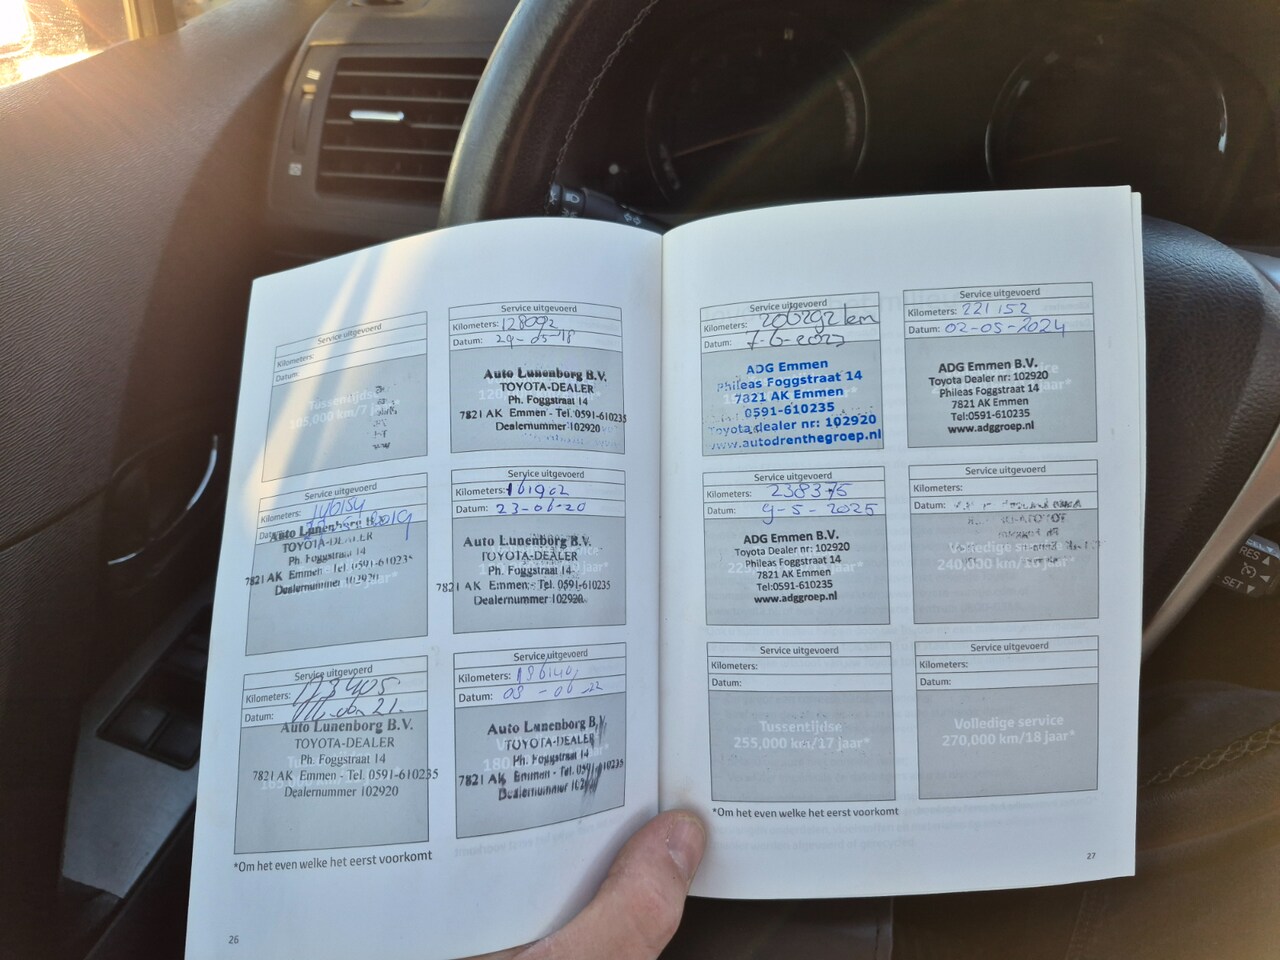 Service uitgevoerd
Kilometers:
Datum:
Tussentijdse
105,000 km/7 jaar*
Service uitgevoerd
Kilometers: 128092
Datum: 29-05-18
Auto Lunenborg B.V.
TOYOTA-DEALER
Ph. Foggstraat 14
7821 AK Emmen - Tel. 0591-610235
Dealernummer 102920
Service uitgevoerd
Kilometers:
2019
Auto Lunenborg B.V.
TOYOTA-DEALER
Ph. Foggstraat 14
7821 AK Emmen - Tel. 0591-610235
Dealernummer 102920
Service uitgevoerd
Kilometers: 161902
Datum: 23-06-20
Auto Lunenborg B.V.
TOYOTA-DEALER
Ph. Foggstraat 14
7821 AK Emmen - Tel. 0591-610235
Dealernummer 102920
Service uitgevoerd
Kilometers: 178405
Datum:
Auto Lunenborg B.V.
TOYOTA-DEALER
Ph. Foggstraat 14
7821 AK Emmen - Tel. 0591-610235
Dealernummer 102920
Service uitgevoerd
Kilometers:
Datum: 03-06-22
Auto Lunenborg B.V.
TOYOTA-DEALER
Ph. Foggstraat 14
7821 AK Emmen - Tel. 0591-610235
Dealernummer
*Om het even welke het eerst voorkomt
26
Service uitgevoerd
Kilometers: 206292 km
Datum: 7-6-2023
ADG Emmen
Phileas Foggstraat 14
7821 AK Emmen
0591-610235
Toyota dealer nr: 102920
www.autodrenthegroep.nl
Service uitgevoerd
Kilometers: 221152
Datum: 02-05-2024
ADG Emmen B.V.
Toyota Dealer nr: 102920
Phileas Foggstraat 14
7821 AK Emmen
Tel:0591-610235
www.adggroep.nl
Service uitgevoerd
Kilometers: 238375
Datum: 9-5-2025
ADG Emmen B.V.
Toyota Dealer nr: 102920
Phileas Foggstraat 14
7821 AK Emmen
Tel:0591-610235
www.adggroep.nl
Service uitgevoerd
Kilometers:
Volledige service
240,000 km/16 jaar*
Service uitgevoerd
Kilometers:
Datum:
Tussentijdse
255,000 km/17 jaar*
Service uitgevoerd
Kilometers:
Datum:
Volledige service
270,000 km/18 jaar*
*Om het even welke het eerst voorkomt
27
RES
SET